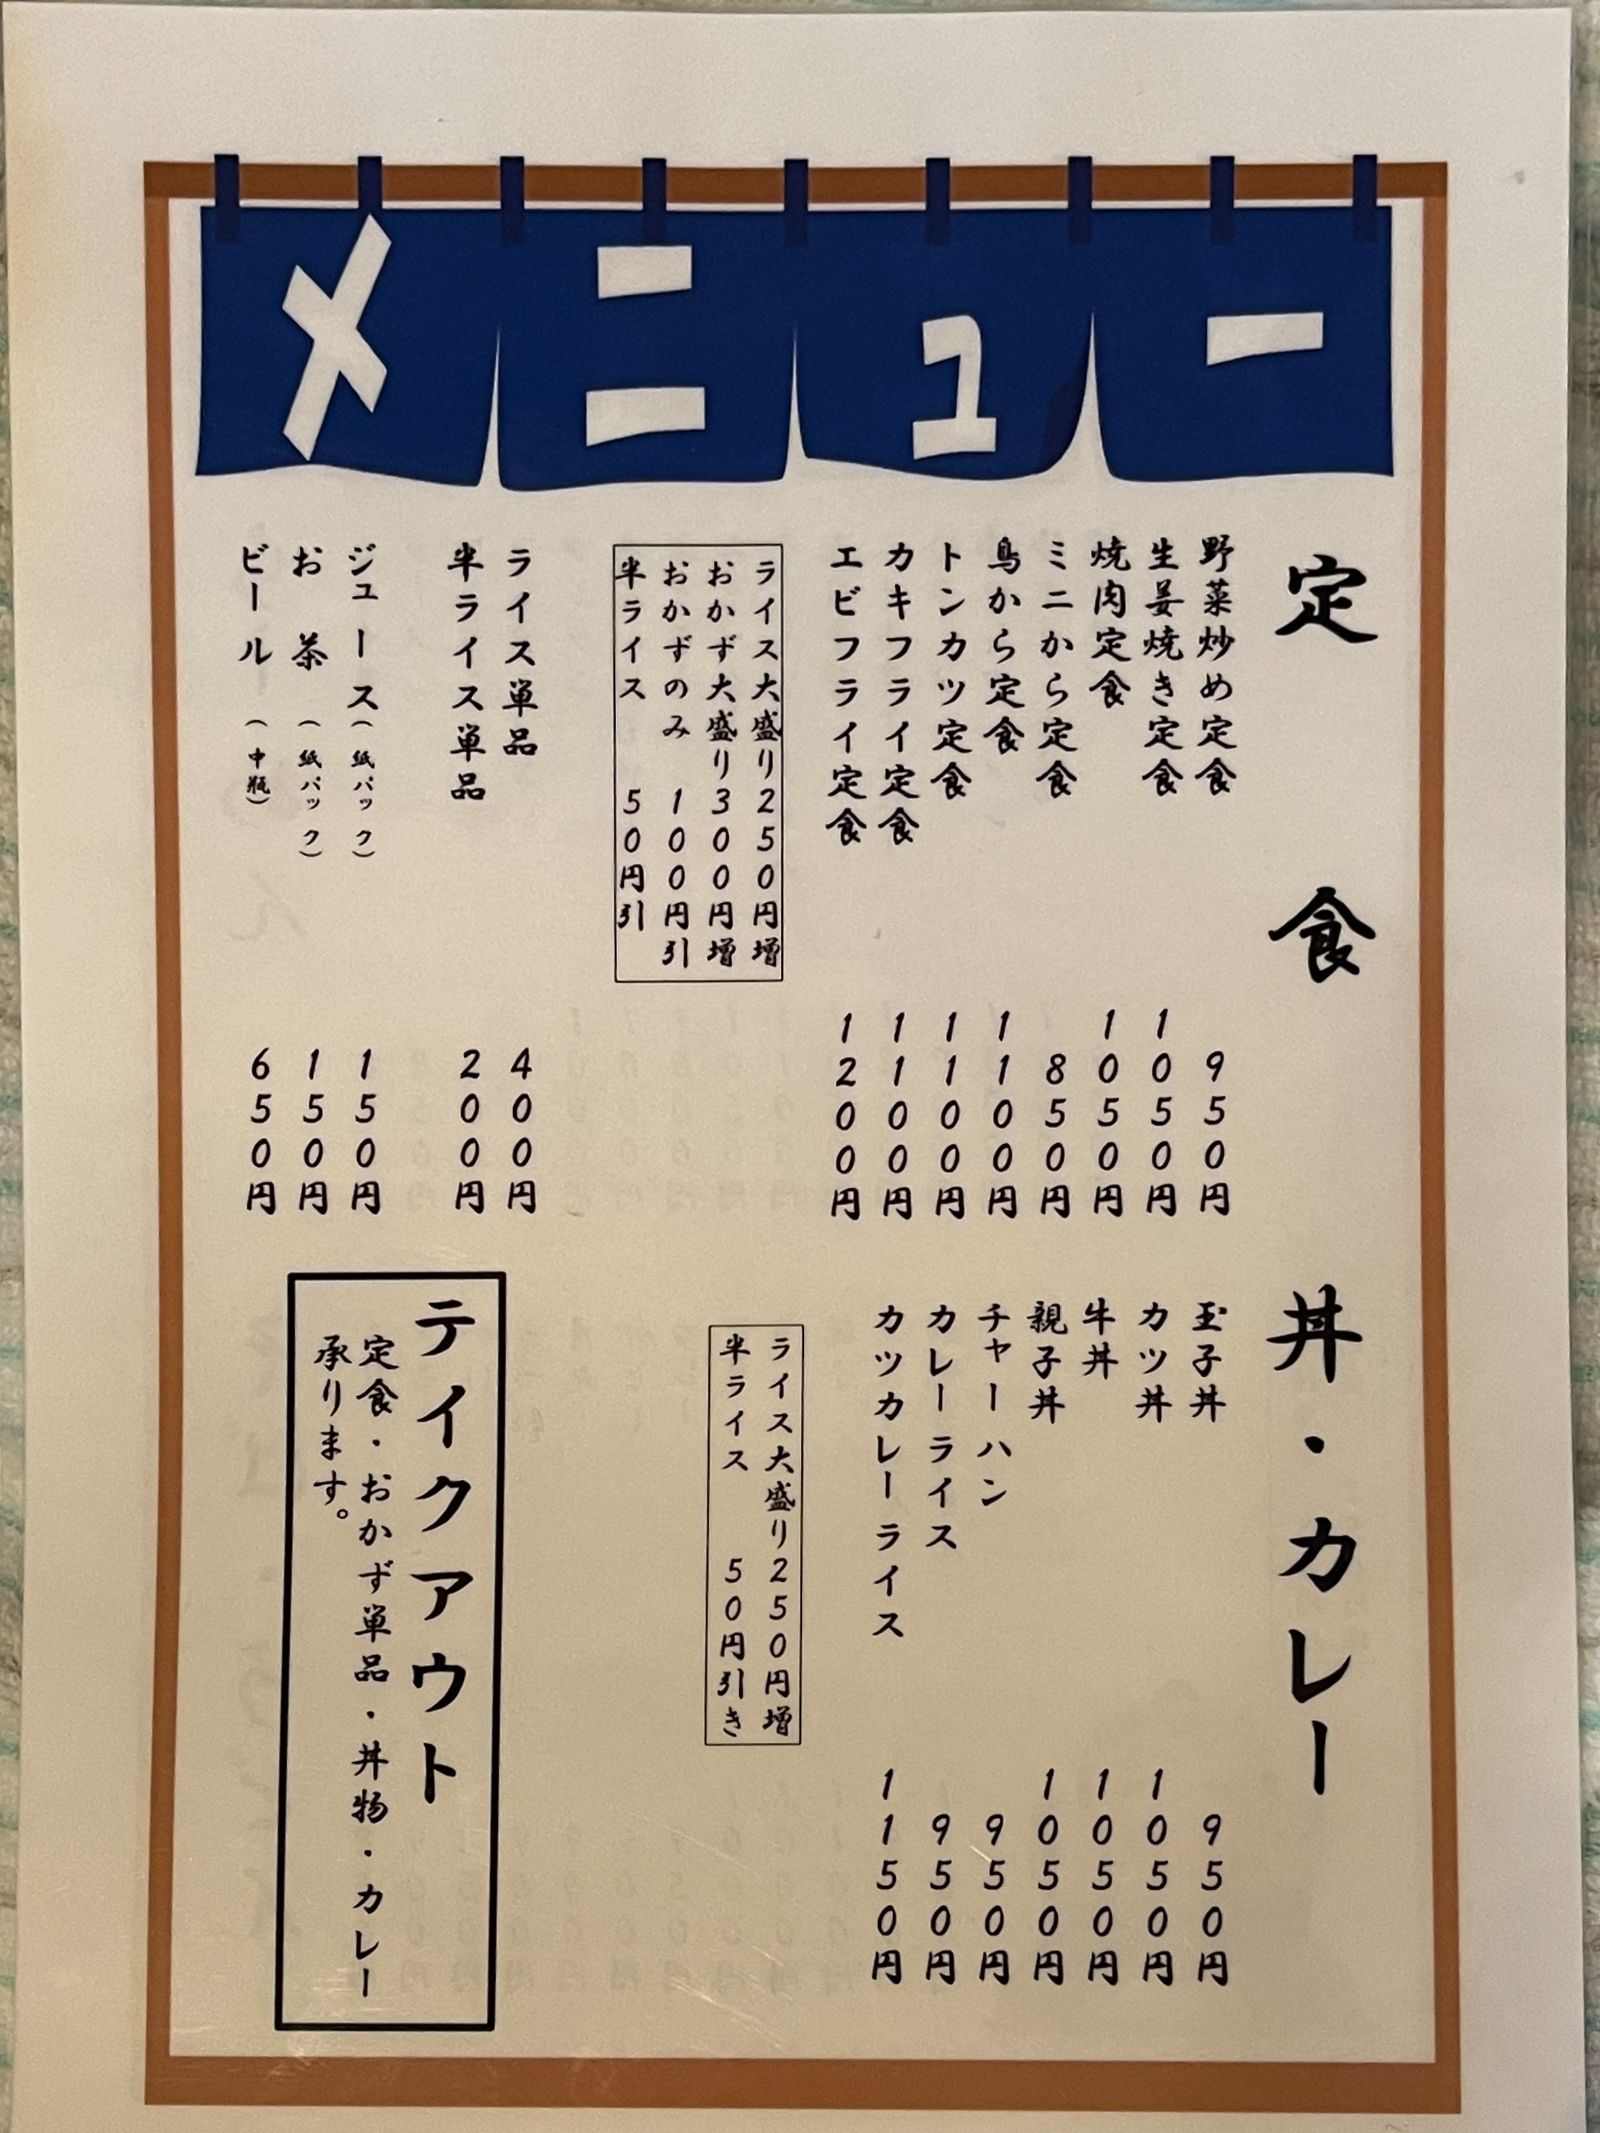 メニュー
定食
野菜炒め定食 950円
生姜焼き定食 1050円
焼肉定食 1050円
ミニから定食 850円
鳥から定食 1100円
トンカツ定食 1100円
カキフライ定食 1100円
エビフライ定食 1200円
ライス大盛り250円増
おかず大盛り300円増
おかずのみ 100円引
半ライス 50円引
ライス単品 400円
半ライス単品 200円
ジュース(紙パック) 150円
お茶(紙パック) 150円
ビール(中瓶) 650円
丼・カレー
玉子丼 950円
カツ丼 1050円
牛丼 1050円
親子丼 1050円
チャーハン 950円
カレーライス 950円
カツカレーライス 1150円
ライス大盛り250円増
半ライス 50円引き
テイクアウト
定食・おかず単品・丼物・カレー
承ります。